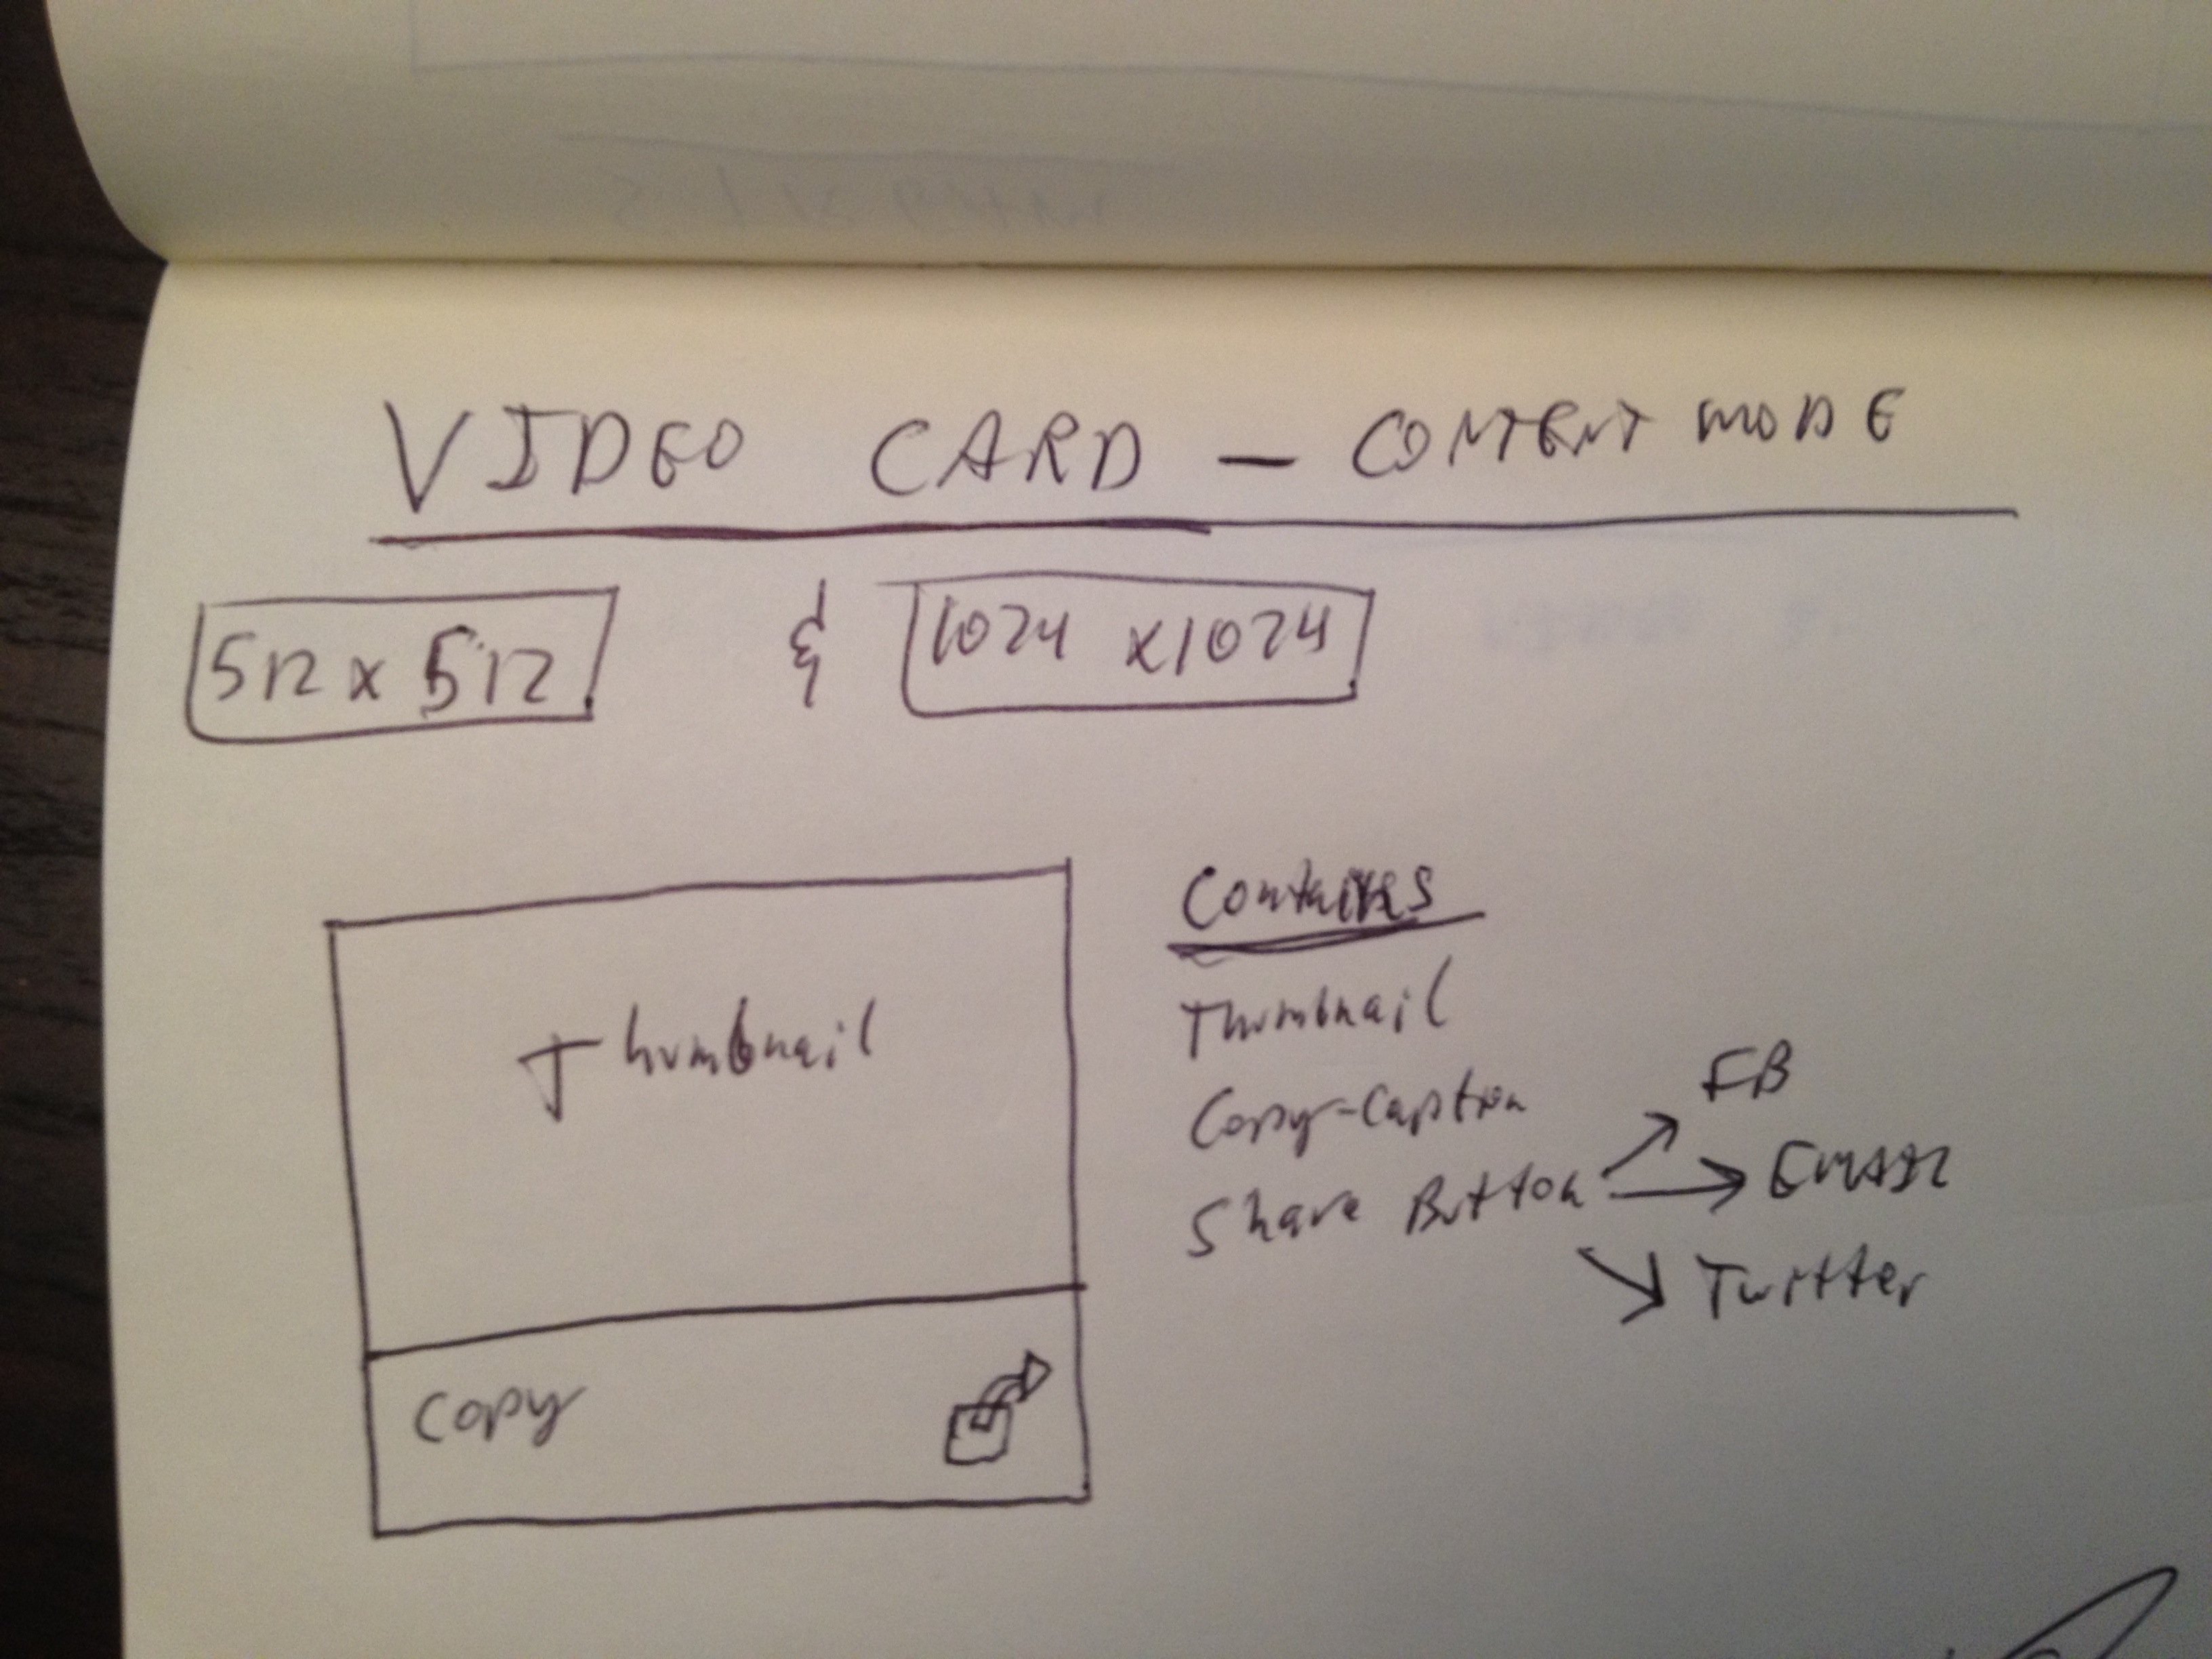 VIDEO CARD — CONTENT MODE
512 x 512 & 1024 x 1024
Thumbnail
Copy
Contains
Thumbnail
Copy-Caption
Share Button
FB
EMAIL
Twitter